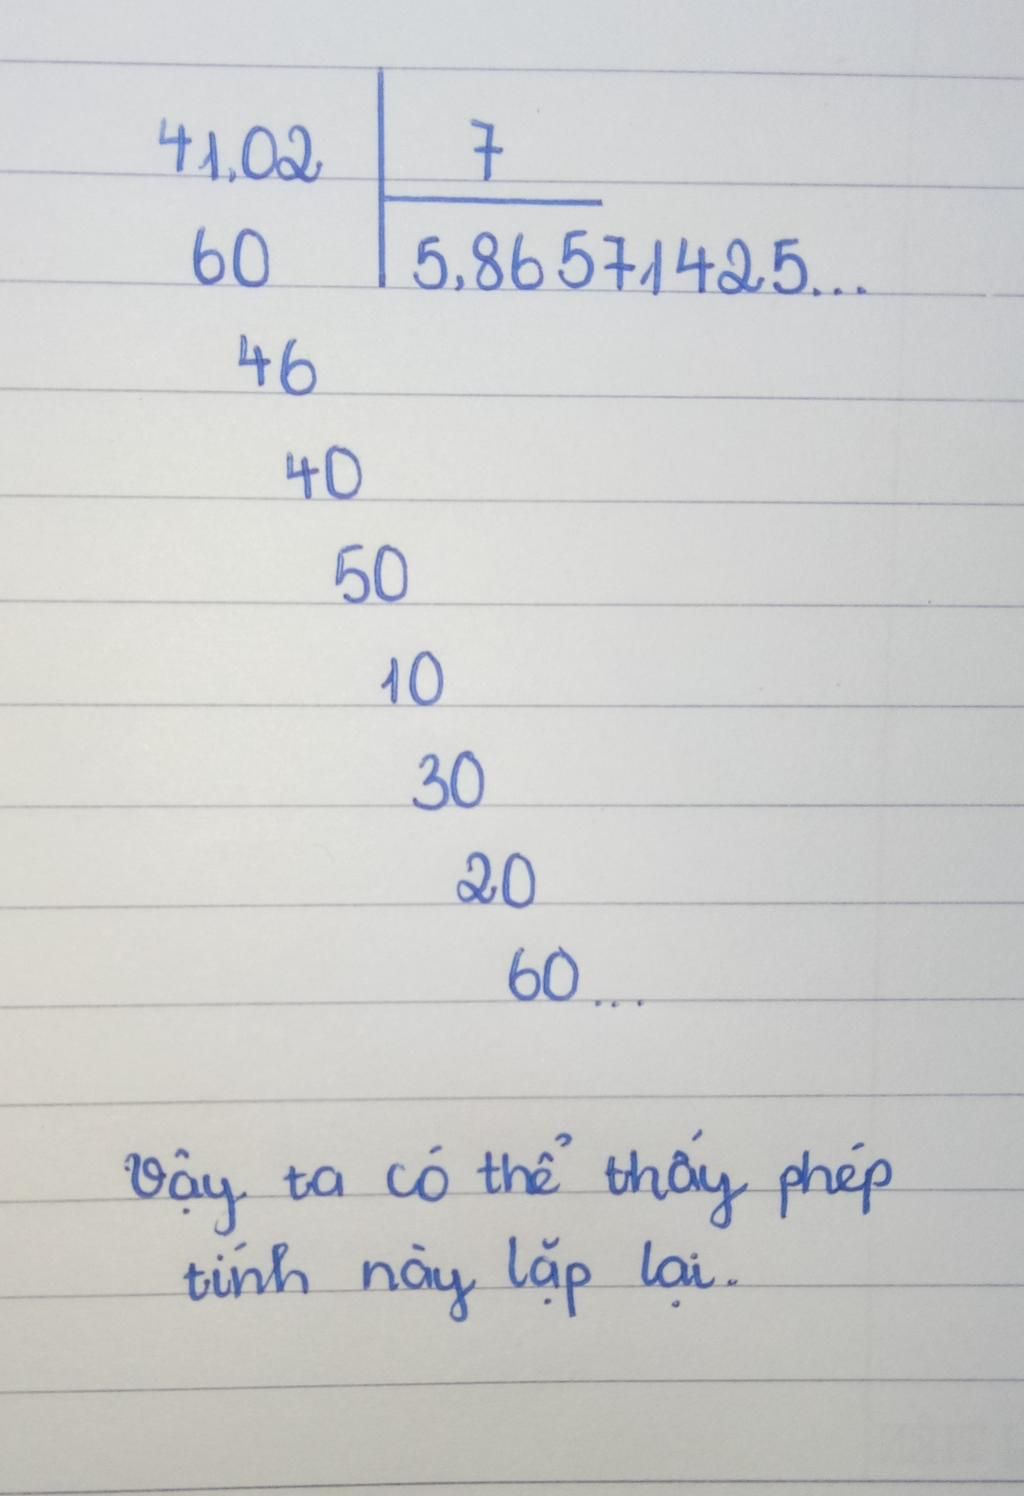 41,02 7
60 5,86571425...
46
40
50
10
30
20
60...
Vậy ta có thể thấy phép
tính này lặp lại.